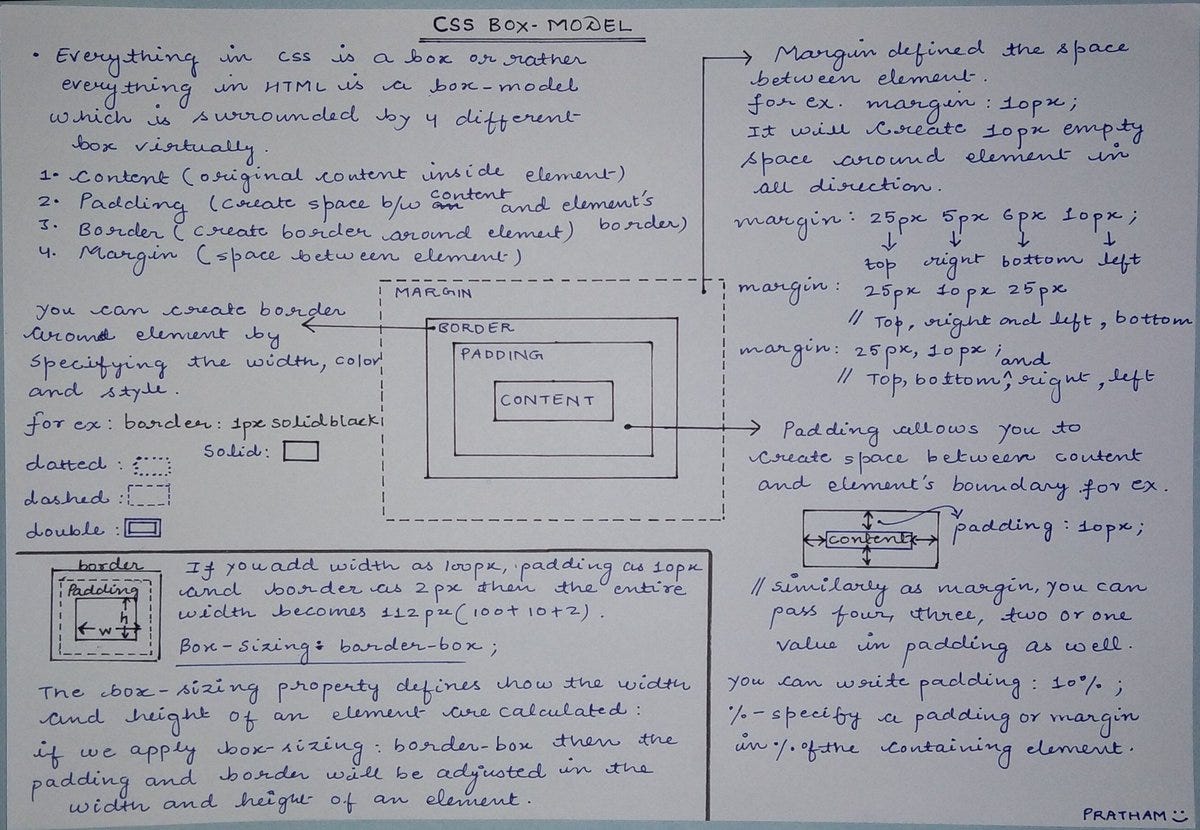 CSS BOX-MODEL
• Everything in css is a box or rather
everything in HTML is a box-model
which is surrounded by 4 different
box virtually.
1. Content (original content inside element)
2. Padding (create space b/w content and element's
border)
3. Border (create border around element)
4. Margin (space between element)
you can create border
around element by
specifying the width, color
and style.
for ex: border: 1px solid black
Solid:
datted :
dashed :
double :
MARGIN
BORDER
PADDING
CONTENT
Margin defined the space
between element.
for ex. margin: 10px;
It will create 10px empty
space around element in
all direction.
margin: 25px 5px 6px 10px;
top right bottom left
margin: 25px 10px 25px
// Top, right and left, bottom
margin: 25px, 10px;
// Top, bottom, and right, left
Padding allows you to
create space between content
and element's boundary. for ex.
content
padding: 10px;
// similarly as margin, you can
pass four, three, two or one
value in padding as well.
you can write padding: 10%;
%-specify a padding or margin
in % of the containing element.
border
Padding
h
w
If you add width as 100px, padding as 10px
and border as 2px then the entire
width becomes 112px (100+10+2).
Box-sizing: border-box;
The box-sizing property defines how the width
and height of an element are calculated:
if we apply box-sizing: border-box then the
padding and border will be adjusted in the
width and height of an element.
PRATHAM